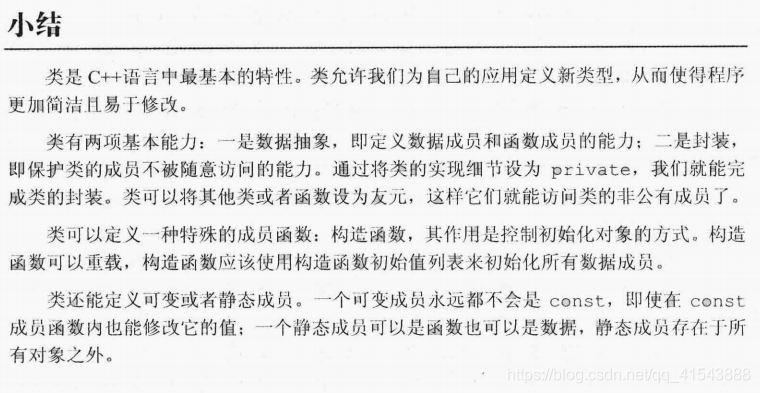 小结
类是 C++语言中最基本的特性。类允许我们为自己的应用定义新类型，从而使得程序
更加简洁且易于修改。
类有两项基本能力：一是数据抽象，即定义数据成员和函数成员的能力；二是封装，
即保护类的成员不被随意访问的能力。通过将类的实现细节设为 private，我们就能完
成类的封装。类可以将其他类或者函数设为友元，这样它们就能访问类的非公有成员了。
类可以定义一种特殊的成员函数：构造函数，其作用是控制初始化对象的方式。构造
函数可以重载，构造函数应该使用构造函数初始值列表来初始化所有数据成员。
类还能定义可变或者静态成员。一个可变成员永远都不会是 const，即使在 const
成员函数内也能修改它的值；一个静态成员可以是函数也可以是数据，静态成员存在于所
有对象之外。
https://blog.csdn.net/qq_41543888